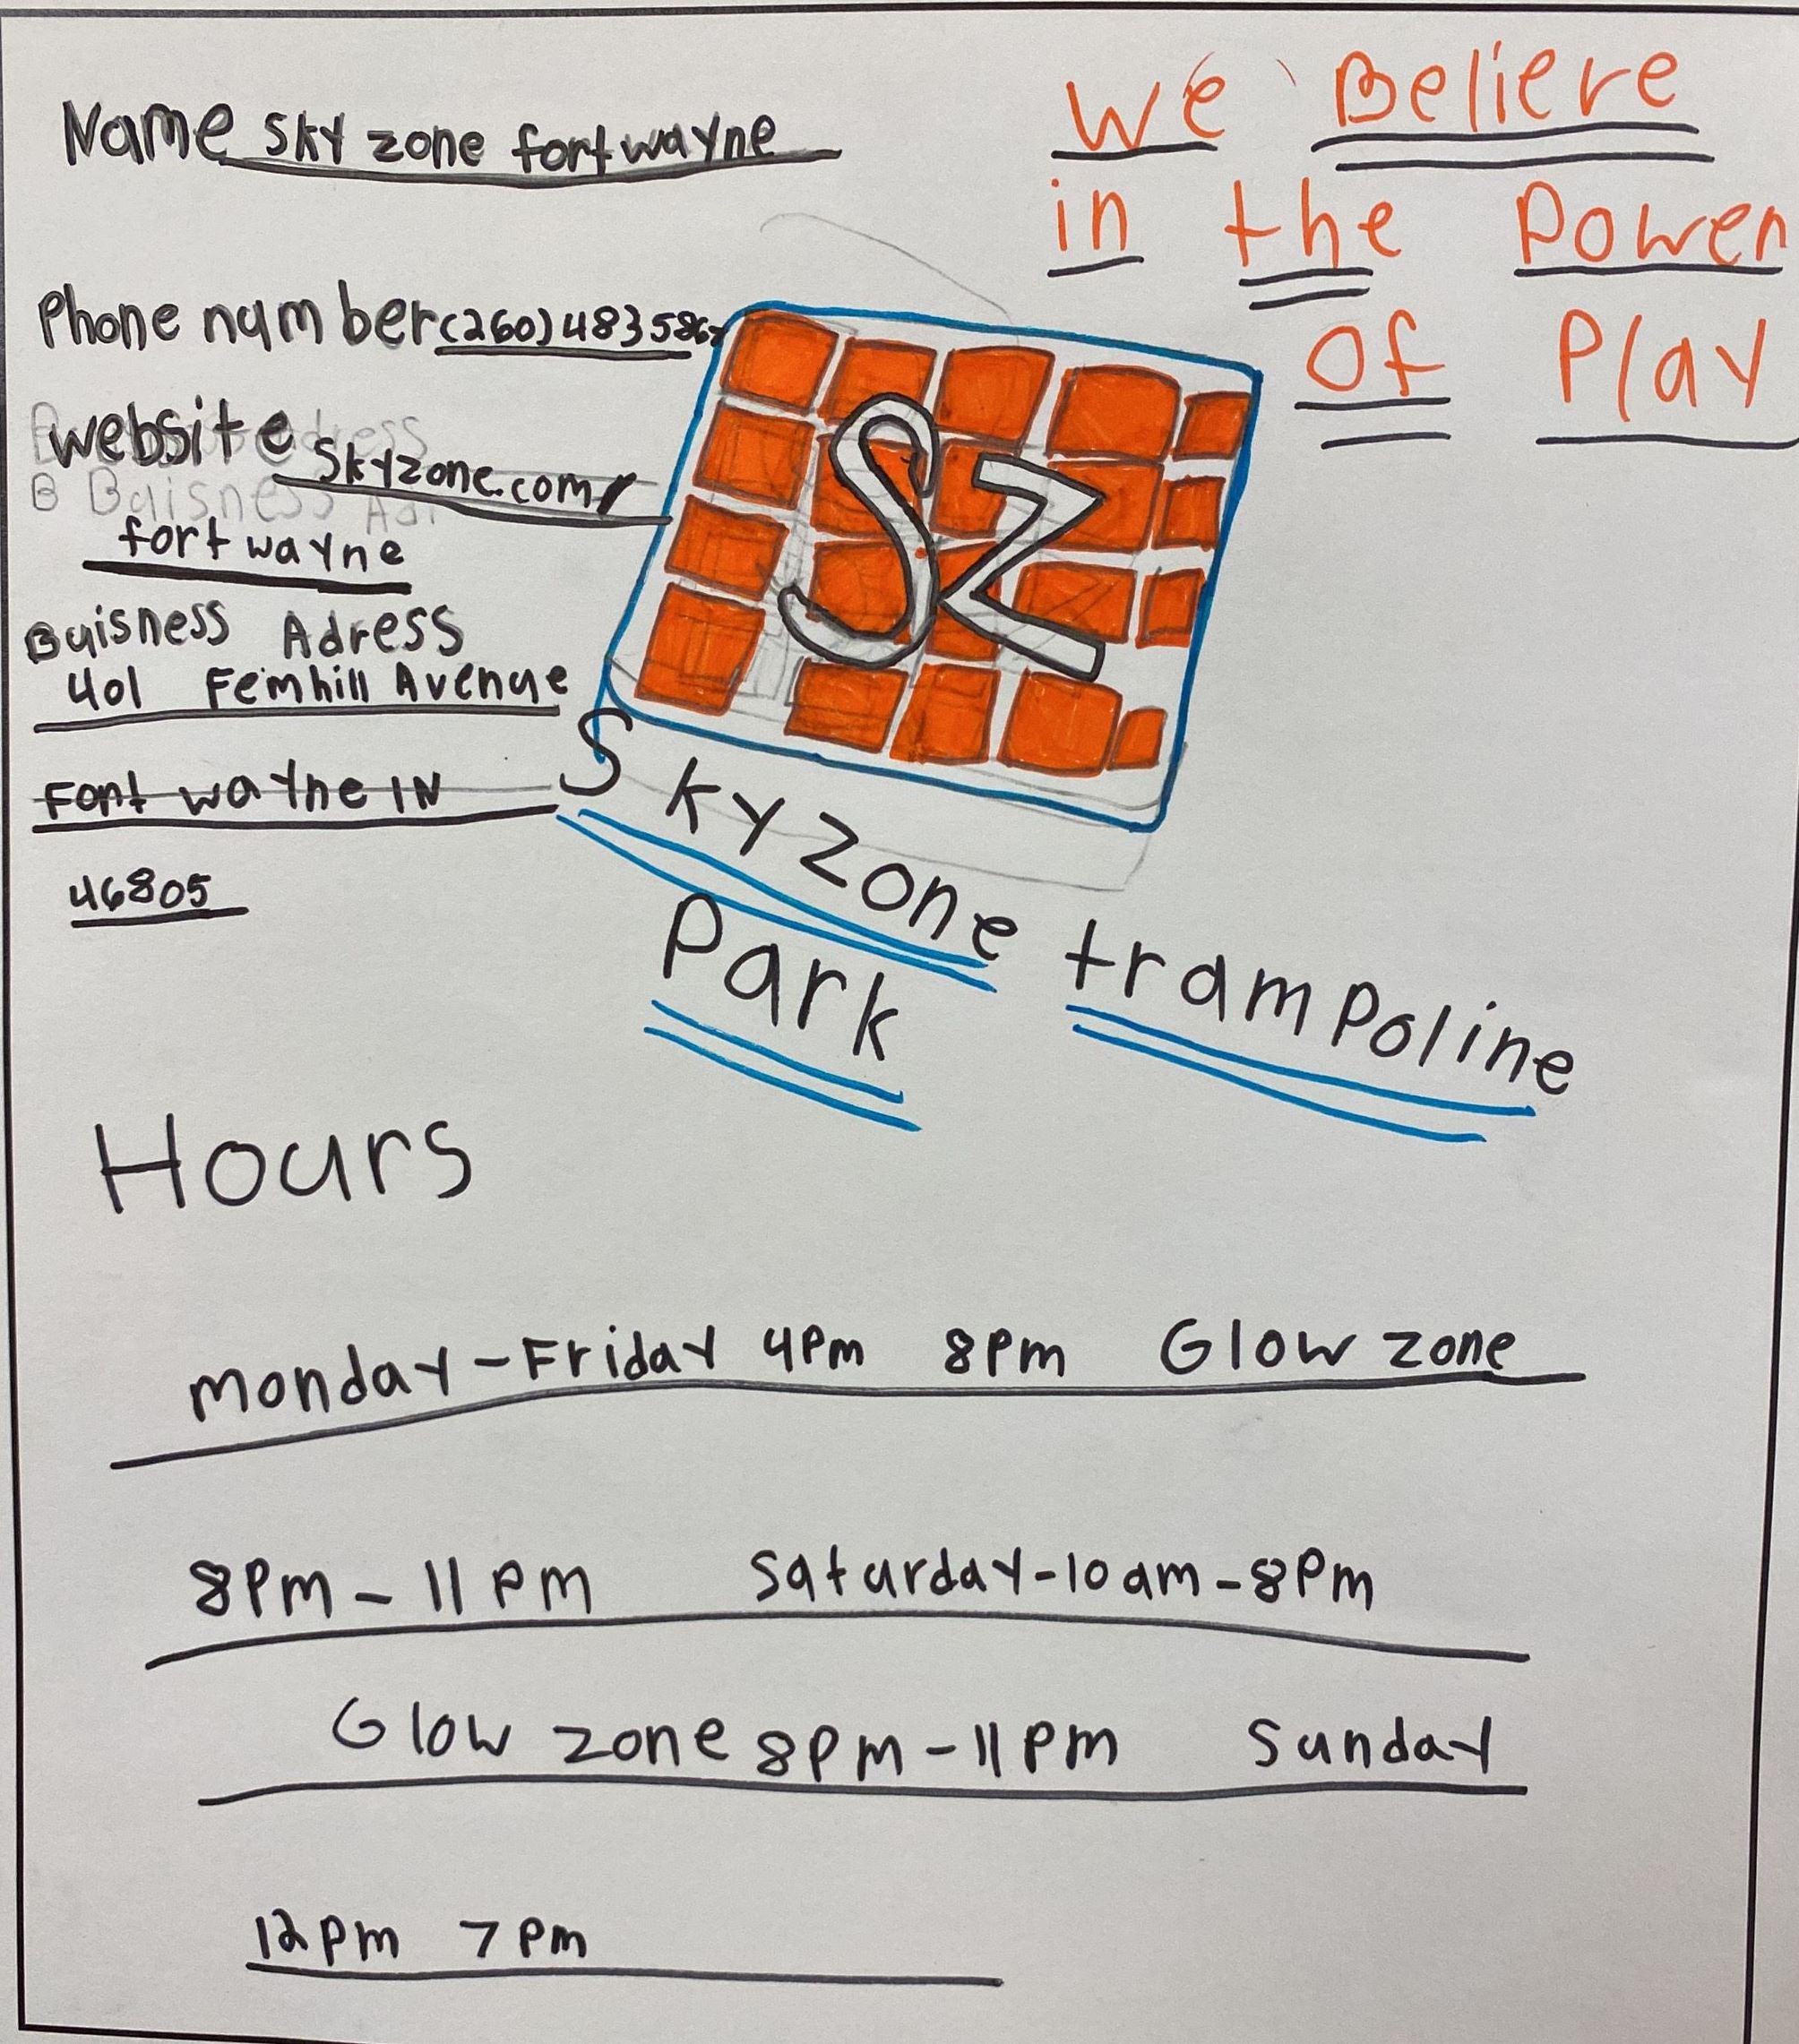 Name Sky zone fort wayne
We Believe
in the Power
of Play
Phone number (260) 483 586
website Skyzone.com/
fort wayne
Buisness Adress
401 Fernhill Avenue
Fort wayne IN
46805
SZ
Skyzone trampoline
Park
Hours
monday-Friday 4Pm 8pm Glow zone
8Pm - 11 Pm Saturday-10am-8Pm
Glow zone 8pm-11pm Sunday
12pm 7pm